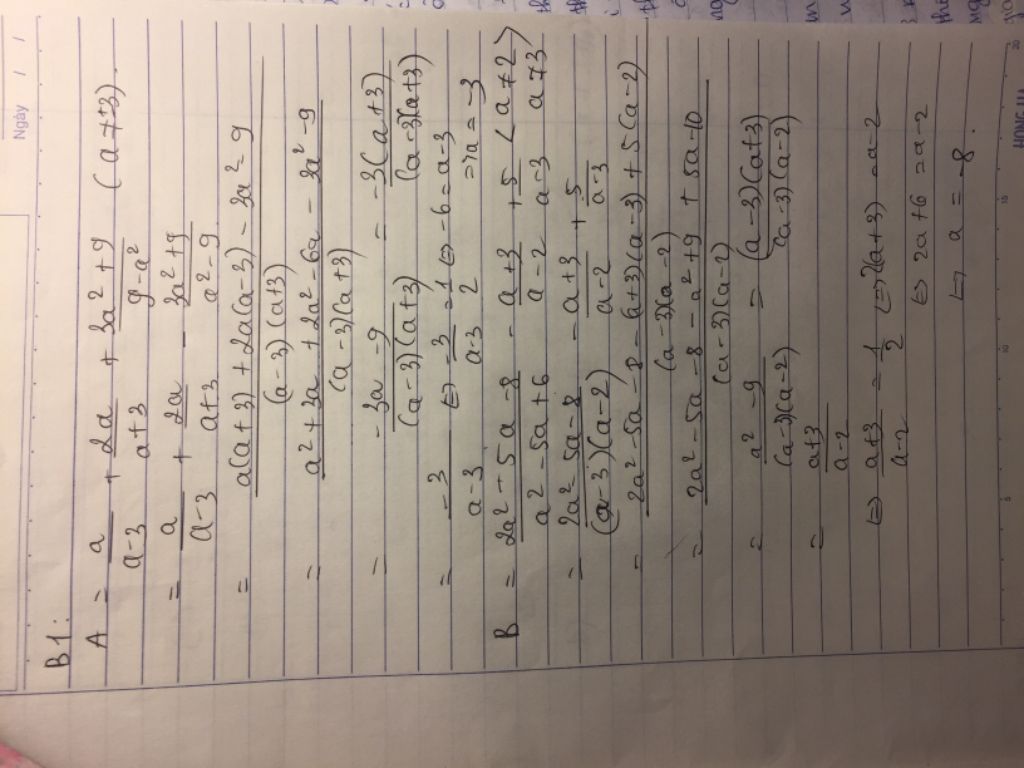 Ngày / /
B1:
A = a/(a-3) + 2a/(a+3) + (3a² + 9)/(9-a²) (a ≠ 3).
= a/(a-3) + 2a/(a+3) - (3a² + 9)/(a² - 9)
= (a(a+3) + 2a(a-3) - 3a² - 9)/((a-3)(a+3))
= (a² + 3a + 2a² - 6a - 3a² - 9)/((a-3)(a+3))
= (-3a - 9)/((a-3)(a+3)) = (-3(a+3))/((a-3)(a+3))
= -3/(a-3) ⇔ -3/(a-3) = 1/2 ⇔ -6 = a-3
⇒ a = -3
B = (2a² - 5a - 8)/(a² - 5a + 6) - (a+3)/(a-2) + 5/(a-3) (a ≠ 2, a ≠ 3)
= (2a² - 5a - 8)/((a-3)(a-2)) - (a+3)/(a-2) + 5/(a-3)
= (2a² - 5a - 8 - (a+3)(a-3) + 5(a-2))/((a-3)(a-2))
= (2a² - 5a - 8 - a² + 9 + 5a - 10)/((a-3)(a-2))
= (a² - 9)/((a-3)(a-2)) = ((a-3)(a+3))/((a-3)(a-2))
= (a+3)/(a-2)
⇔ (a+3)/(a-2) = 1/2 ⇔ 2(a+3) = a-2
⇔ 2a + 6 = a - 2
⇔ a = -8.
5 10 15 20